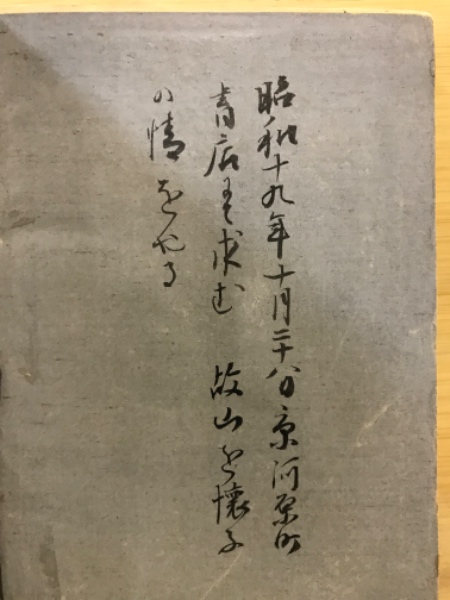 昭和十九年十月二十八日京河原町
書店求む 故山を懐ふ
の情をやる